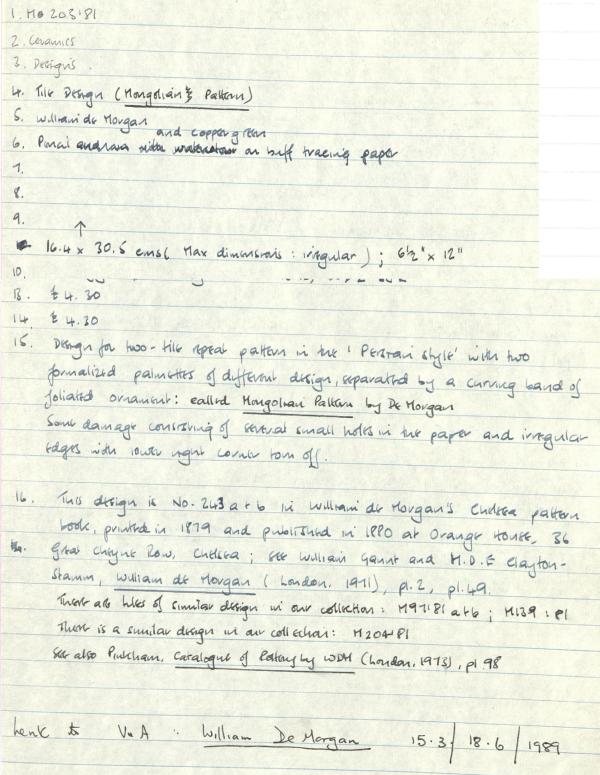 1. Me 203'81
2. Ceramics
3. Designs.
4. Tile Design (Mongolian Pattern)
5. William de Morgan
and copper green
6. Pencil on buff tracing paper
7.
8.
9.
16.4 x 30.5 cms ( Max dimensions : irregular ) ; 6½" x 12"
10.
13. £ 4.30
14. £ 4.30
15. Design for two-tile repeat pattern in the 'Persian style' with two
formalized palmettes of different design, separated by a curving band of
foliated ornament: called Mongolian Pattern by De Morgan
Some damage consisting of several small holes in the paper and irregular
edges with lower right corner torn off.
16. This design is No. 243 a + b in William de Morgan's Chelsea pattern
book, printed in 1879 and published in 1880 at Orange House, 36
Great Cheyne Row, Chelsea ; see William Gaunt and M.D.E Clayton-
Stamm, William de Morgan ( London, 1971), pl. 2, pl. 49.
There are tiles of similar design in our collection : M97'81 a + b ; M139 : 81
There is a similar design in our collection: M204'81
See also Pinkham, Catalogue of Pottery by WDM (London, 1973), pl 98
to V & A : William De Morgan 15.3 / 18.6 / 1989